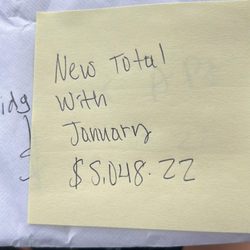 New Total
With
January
$5,048.22
idg